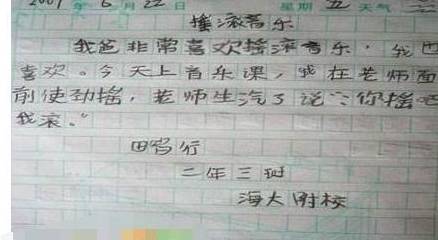 2007年6月22日 星期五 天气
摇滚音乐
我爸非常喜欢摇滚音乐，我也
喜欢。今天上音乐课，我在老师面
前使劲摇，老师生汽了说：“你摇吧
我滚。”
田鸣行
二年三班
海大附校